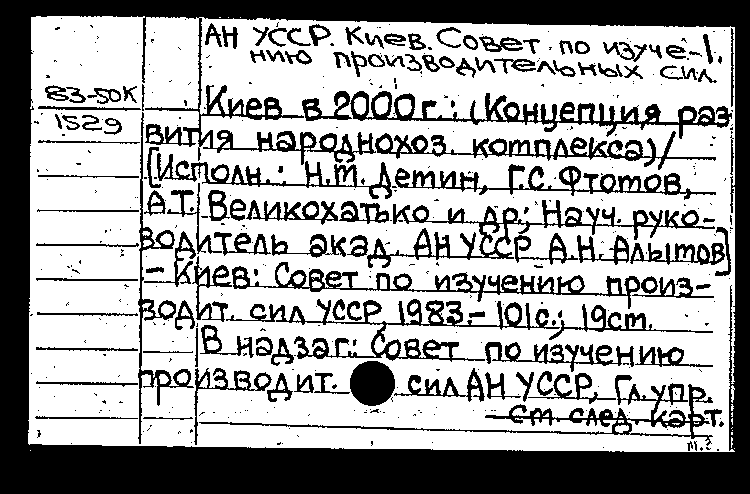 АН УССР. Киев. Совет по изуче- 1.
нию производительных сил.
83-50К
1529
Киев в 2000г.: (Концепция раз
вития народнохоз. комплекса)/
[Исполн.: Н.М. Детин, Г.С. Фтотов,
А.Т. Великохатько и др.; Науч. руко-
водитель акад. АН УССР А.Н. Алытов]
- Киев: Совет по изучению произ-
водит. сил УССР, 1983.- 101с.; 19см.
В надзаг.: Совет по изучению
производит. сил АН УССР, Гл.упр.
См. след. карт.